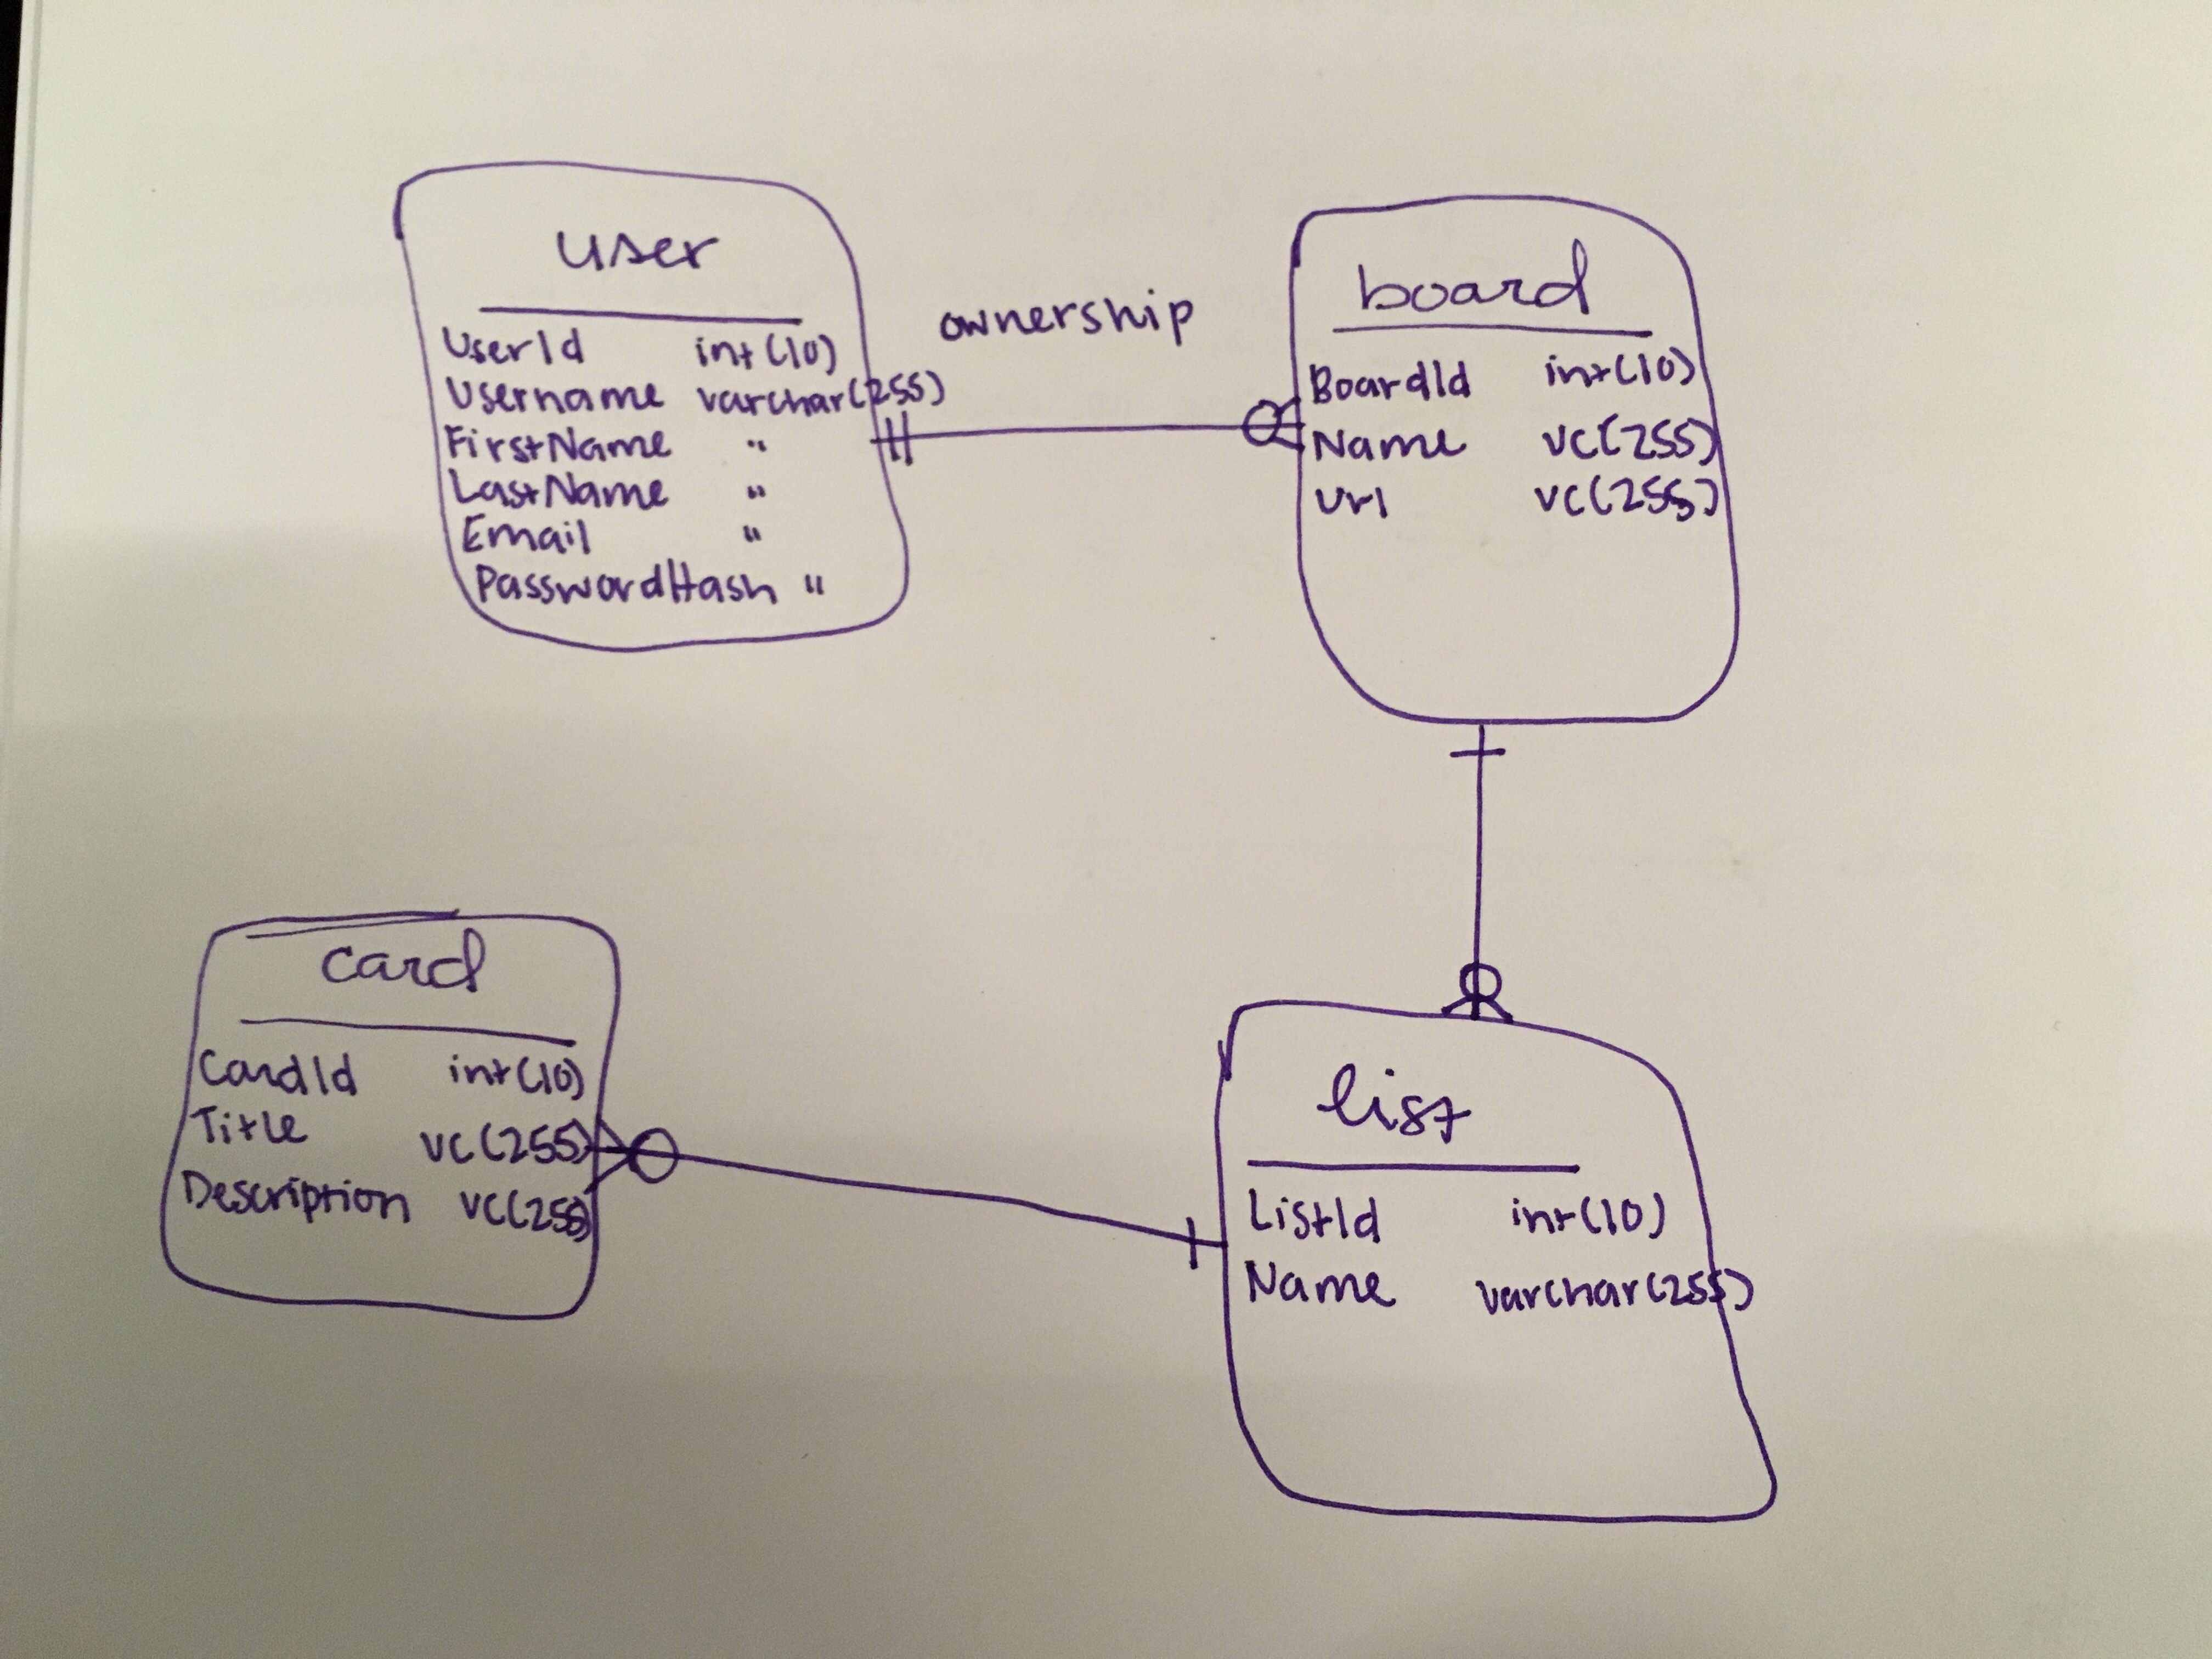 user
UserId int(10)
Username varchar(255)
FirstName "
LastName "
Email "
PasswordHash "
ownership
board
BoardId int(10)
Name vc(255)
Url vc(255)
card
CardId int(10)
Title vc(255)
Description vc(255)
list
ListId int(10)
Name varchar(255)